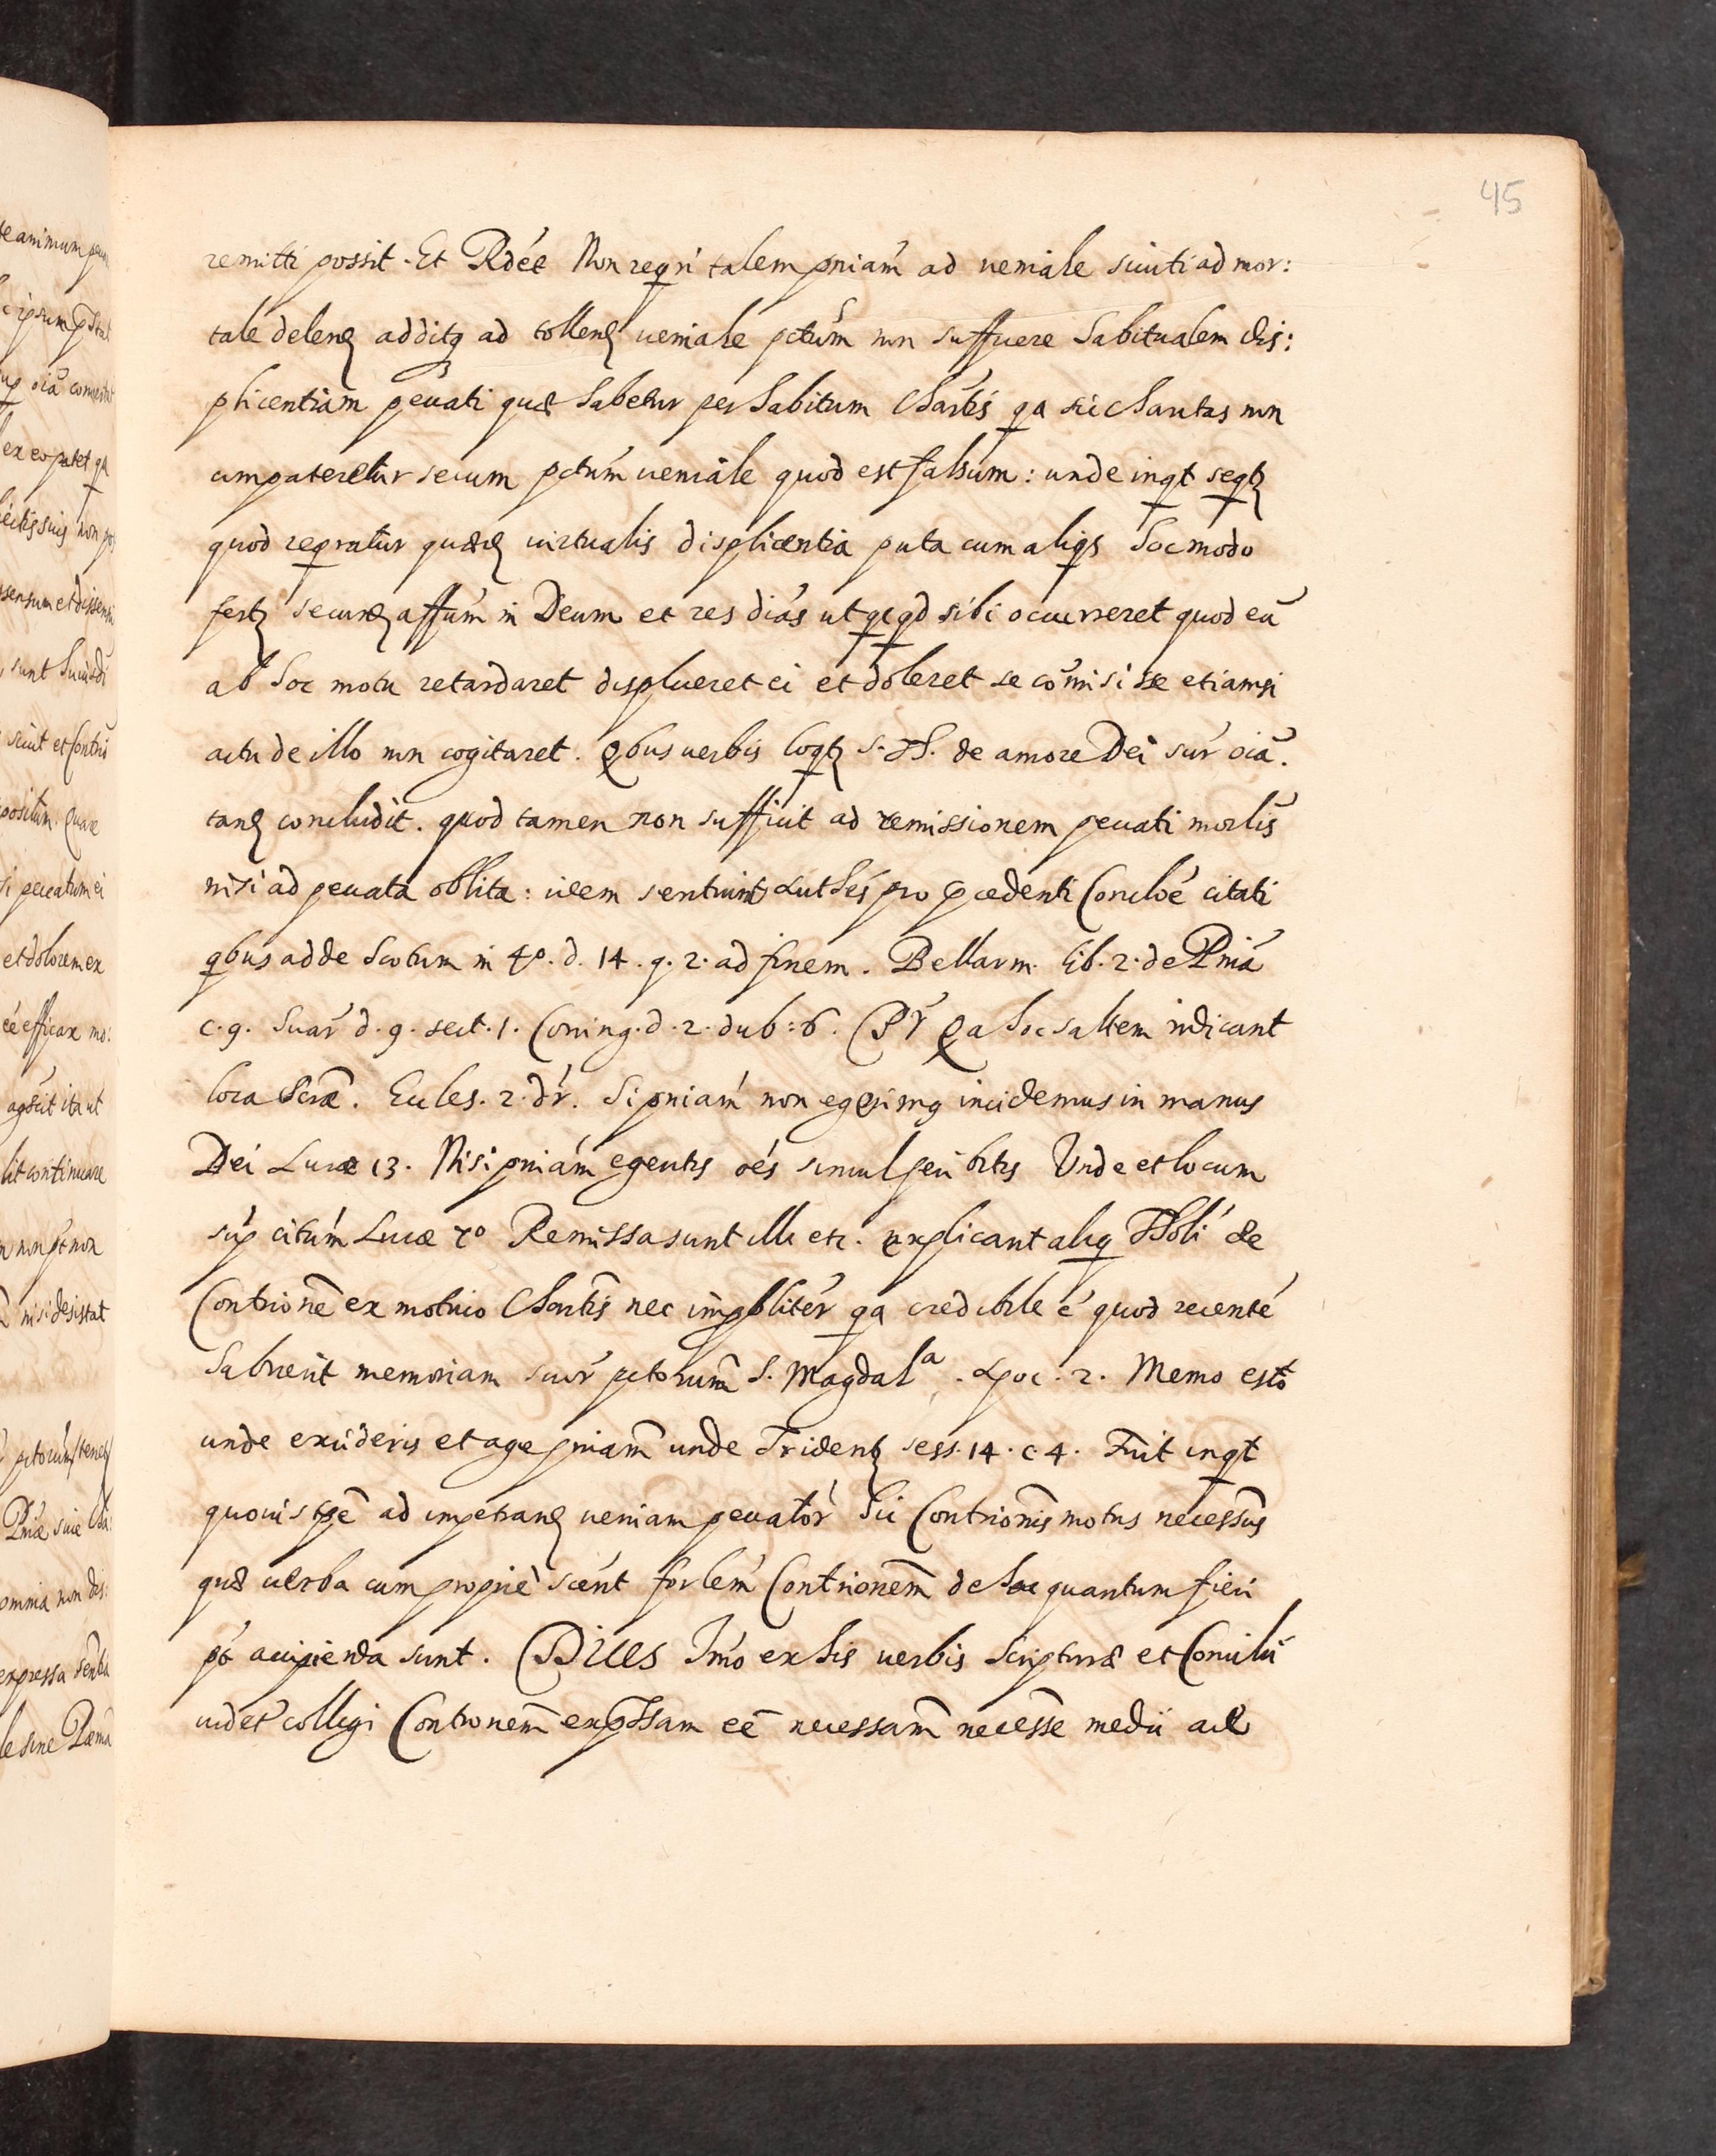 45
remitti possit. Et Rdét Non reqri talem pniam ad veniale sicuti ad mor:
tale delend additq ad tollend veniale pctúm non sufficere habitualem dis:
plicentiam peccati quæ habetur per habitum Chartís qa sic charitas non
compateretur secum pctúm veniale quod est falsum: unde inqt seqtr
quod reqratur quæd virtualis displicentia puta cum aliqs hoc modo
fertr secund affúm in Deum et res diás ut qcqd sibi occurreret quod eū
ab hoc motu retardaret displiceret ei et doleret se cōmisisse etiamsi
actu de illo non cogitaret. Qbus verbis loqtr S. Th. de amore Dei súr oiā.
tand concludit. quod tamen non sufficit ad remissionem peccati morlis
nisi ad peccata oblita: idem sentiunt Authés pro præcedenti Conclóe citati
qbus adde Scotum in 4º. d. 14. q. 2. ad finem. Bellarm. lib. 2. de Pniá
c. 9. Suar d. 9. sect. 1. Coning. d. 2. dub: 6. Pr Qa hoc saltem indicant
loca Scræ. Eccles. 2. dr. Si pniam non egerimq incidemus in manus
Dei Lucæ 13. Nisi pniám egeritis oés simul peribitis Unde et locum
súp citúm Lucæ 7º Remissa sunt illi etc. explicant aliq Tholi de
Contrionē ex motivo Chartis nec improbliter qa credibile é quod recenté
habuerit memoriam suor pctorum S. Magdalª. Apoc. 2. Memo estó
unde excideris et age pniam unde Trident sess. 14. c. 4. Fuit inqt
quovis tpē ad impetrand veniam peccatór hic Contrionis motus necessus
quæ verba cum proprie scent forlem Contrionem de hac quantum fieri
pt accipienda sunt. Dices Imo ex his verbis Scripturæ et Concilii
videt colligi Contrionem expssam eē necessam necesse medii ad